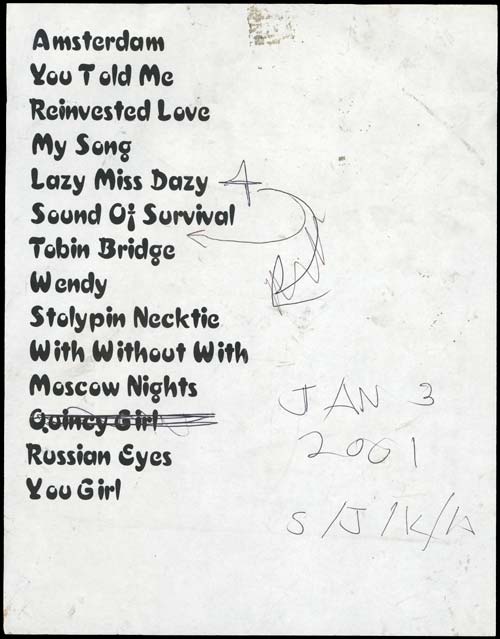 Amsterdam
You Told Me
Reinvested Love
My Song
Lazy Miss Dazy 4
Sound Of Survival
Tobin Bridge
Wendy
Stolypin Necktie
With Without With
Moscow Nights
Quincy Girl
Russian Eyes
You Girl
JAN 3
2001
S/J/K/A